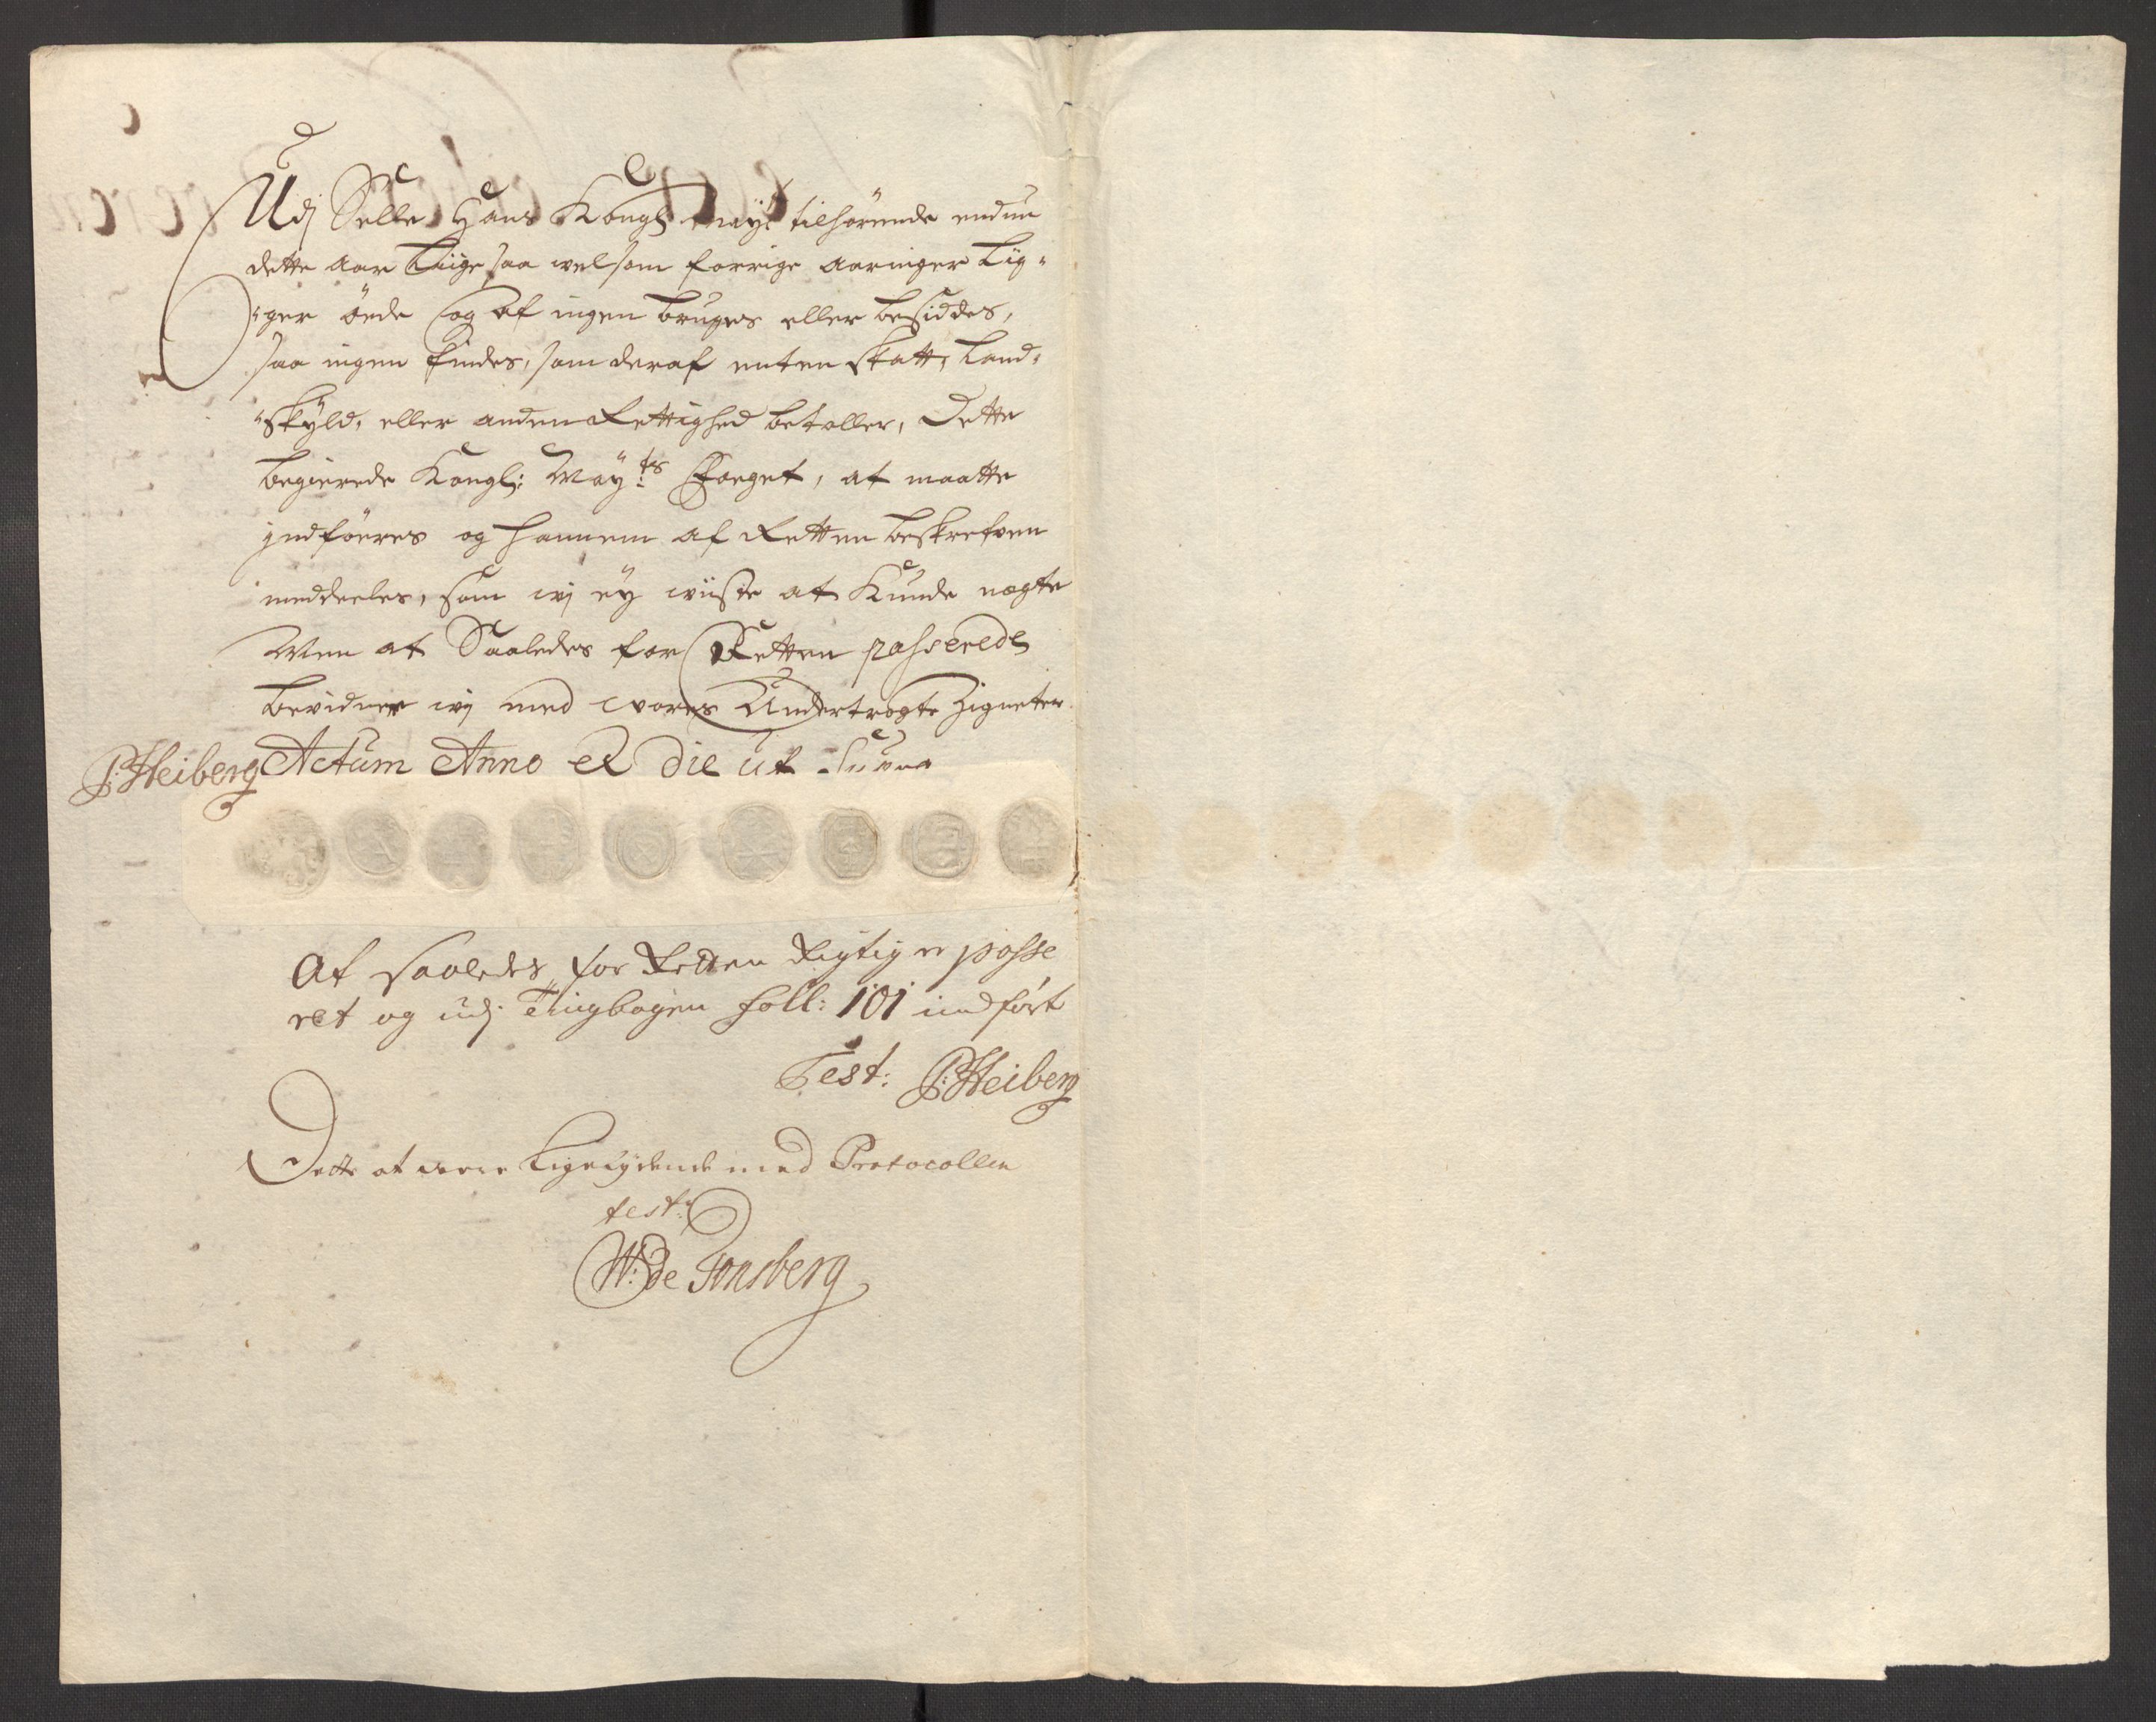 Udj Selle Hans Kongl Mayt tilhørende endnu
dette aar liige saa velsom forrige aaringer lig-
ger øede og af ingen bruges eller besiddes,
saa ingen findes, som deraf enten skatt, land-
skyld, eller anden Rettighed betaller, Dette
begierede Kongl: May:ts Foeget, at maatte
indføeres og hannem af Retten beskrefven
meddeeles, som wj ey wiiste at Kunde nægte
Men at Saaledes for Retten passerede
bevidner wj med wores Undertrogte Zigneter.
P:Heiberg Actum Anno et die ut Supra
At saaledes for Retten Rigtig er passe
ret og udj Tingbogen foll: 101 indført
Test: P:Heiberg
Dette at were ligelydende med Protocollen
test:
W: de Tonsberg